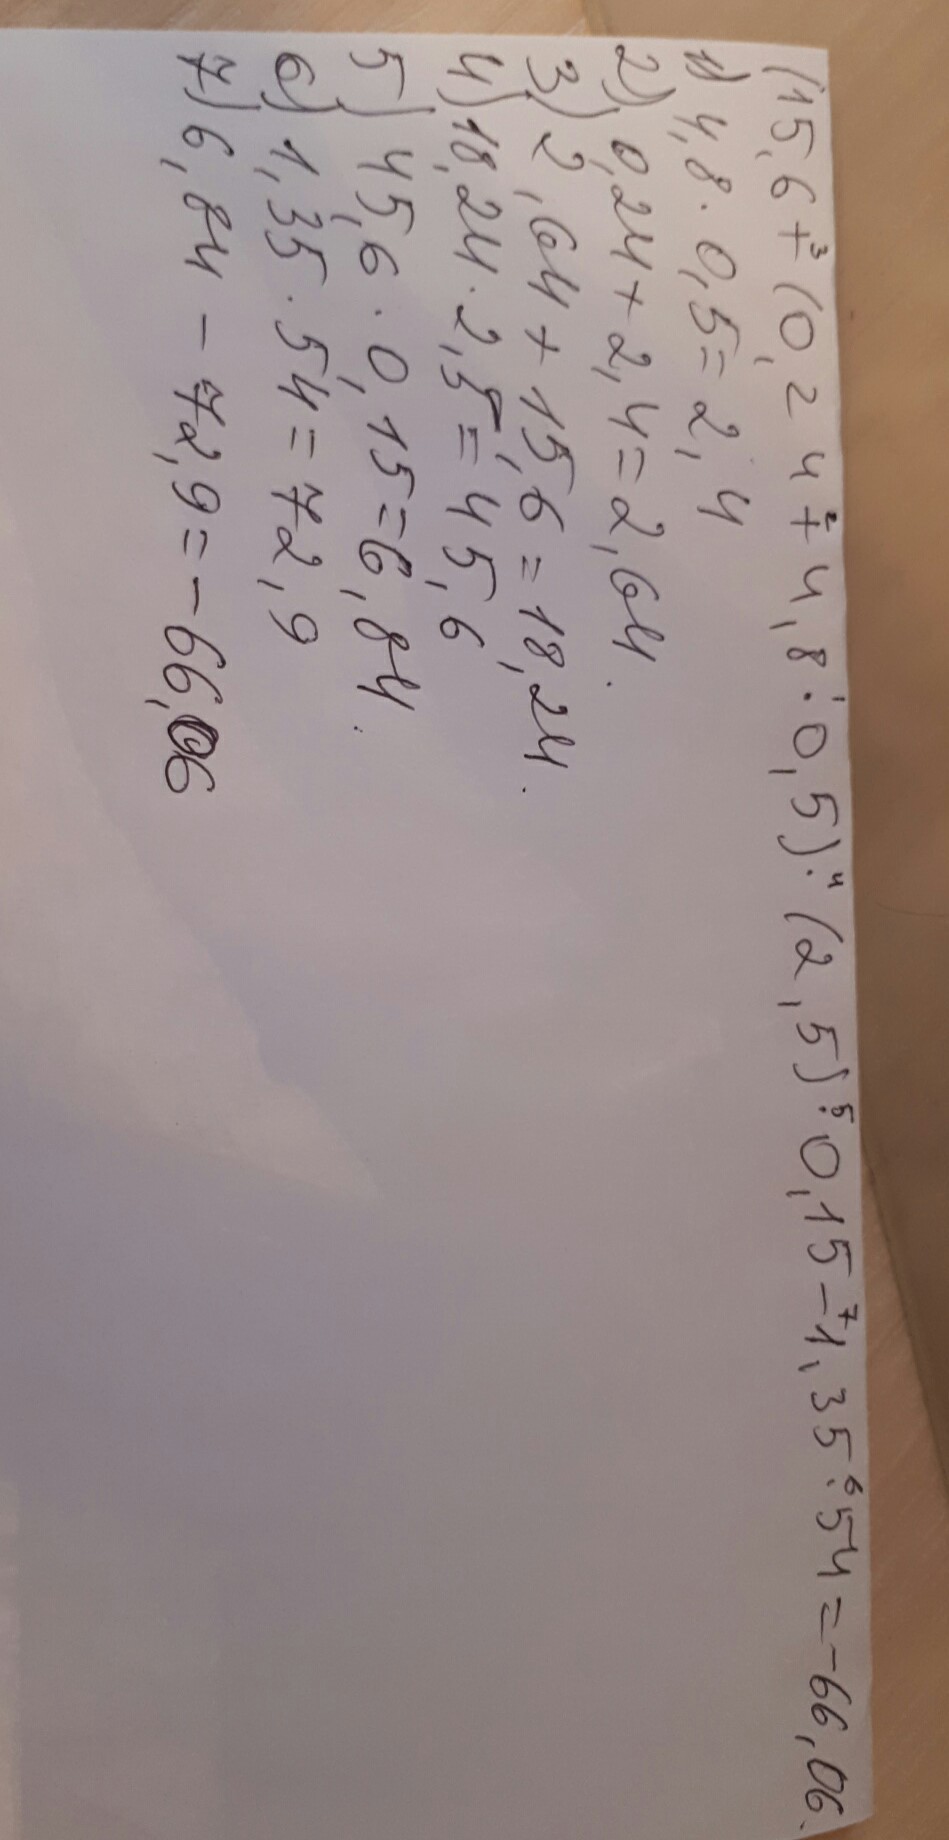 (15,6+³(0,24+²4,8·¹0,5)·⁴(2,5)·⁵0,15-⁷1,35·⁶54=-66,06.
1) 4,8·0,5=2,4
2) 0,24+2,4=2,64.
3) 2,64+15,6=18,24.
4) 18,24·2,5=45,6
5) 45,6·0,15=6,84.
6) 1,35·54=72,9
7) 6,84-72,9=-66,06